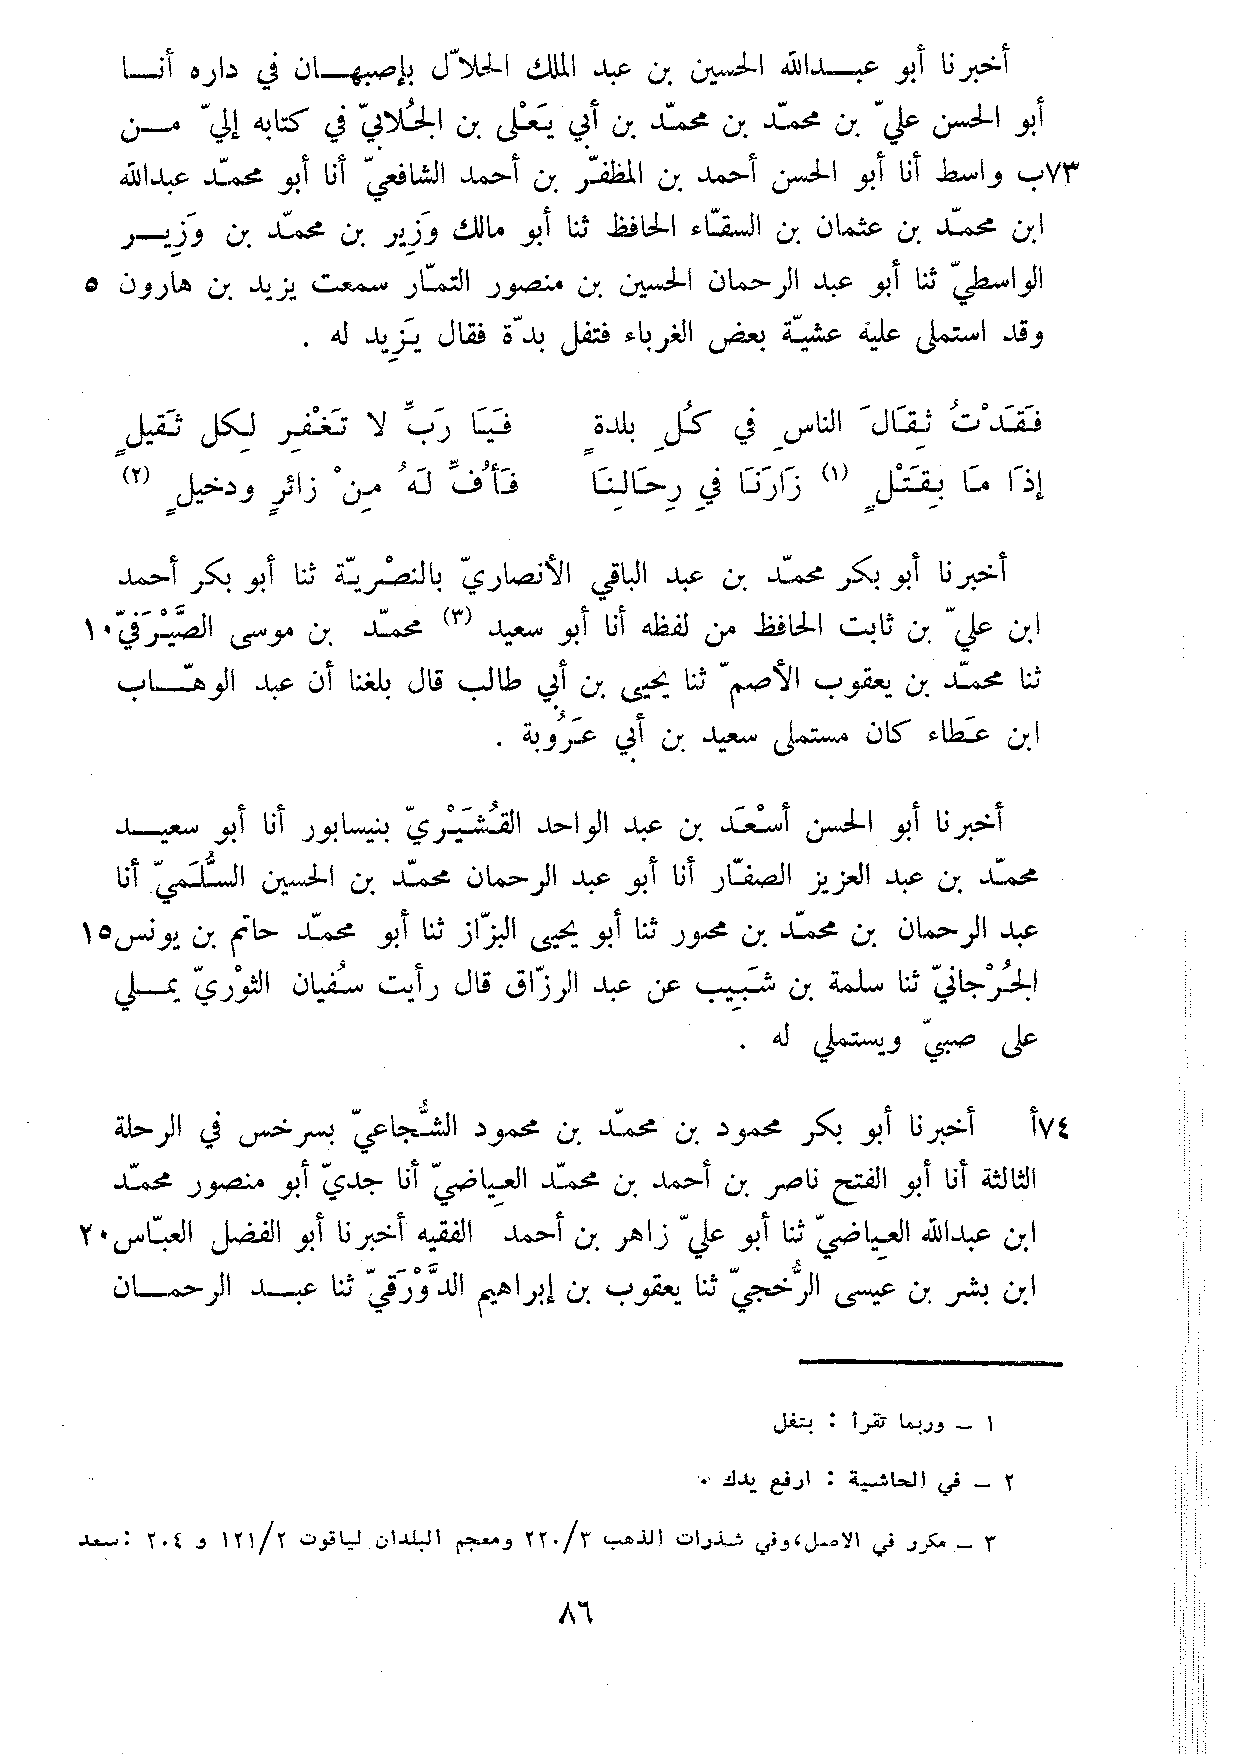 أخبرنا أبو عبدالله الحسين بن عبد الملك الخلاّل بإصبهان في داره أنا
أبو الحسن عليّ بن محمّد بن محمّد بن أبي يَعْلِى بن الجُلابيّ في كتابه إليّ من
٧٣ب واسط أنا أبو الحسن أحمد بن المظفّر بن أحمد الشافعيّ أنا أبو محمّد عبدالله
ابن محمّد بن عثمان بن السقّاء الحافظ ثنا أبو مالك وَزِير بن محمّد بن وَزِير
الواسطيّ ثنا أبو عبد الرحمان الحسين بن منصور التمّار سمعت يزيد بن هارون ٥
وقد استملى عليه عشيّة بعض الغرباء فتفل بدّة فقال يَزِيد له .
فَقَدْتُ ثِقَالَ الناسِ في كلِّ بلدةٍ فَيَا رَبِّ لا تَغْفِر لِكلِ ثَقيلٍ
إذَا مَا بِقَتْلٍ (١) زَارَنَا في رِحَالِنَا فَأُفٌّ لَهُ مِنْ زائرٍ ودخيلٍ (٢)
أخبرنا أبو بكر محمّد بن عبد الباقي الأنصاريّ بالنصْريّة ثنا أبو بكر أحمد
ابن عليّ بن ثابت الحافظ من لفظه أنا أبو سعيد (٣) محمّد بن موسى الصَّيْرَفيّ ١٠
ثنا محمّد بن يعقوب الأصمّ ثنا يحيى بن أبي طالب قال بلغنا أن عبد الوهّاب
ابن عَطاء كان مستملى سعيد بن أبي عَرُوبة .
أخبرنا أبو الحسن أسْعَد بن عبد الواحد القُشَيْريّ بنيسابور أنا أبو سعيد
محمّد بن عبد العزيز الصفّار أنا أبو عبد الرحمان محمّد بن الحسين السُّلَميّ أنا
عبد الرحمان بن محمّد بن محبور ثنا أبو يحيى البزّاز ثنا أبو محمّد حاتم بن يونس ١٥
الجُرْجانيّ ثنا سلمة بن شَبِيب عن عبد الرزّاق قال رأيت سُفيان الثوْريّ يملي
على صبيّ ويستملي له .
٧٤أ أخبرنا أبو بكر محمود بن محمّد بن محمود الشُّجاعيّ بسرخس في الرحلة
الثالثة أنا أبو الفتح ناصر بن أحمد بن محمّد العِياضيّ أنا جديّ أبو منصور محمّد
ابن عبدالله العِياضيّ ثنا أبو عليّ زاهر بن أحمد الفقيه أخبرنا أبو الفضل العبّاس ٢٠
ابن بشر بن عيسى الرُّخجيّ ثنا يعقوب بن إبراهيم الدَّوْرَقيّ ثنا عبد الرحمان
١ – وربما تقرأ : بتفل
٢ – في الحاشية : ارفع يدك .
٣ – مكرر في الاصل، وفي شذرات الذهب ٢٢٠/٣ ومعجم البلدان لياقوت ١٢١/٢ و ٢٠٤ : سعد
٨٦